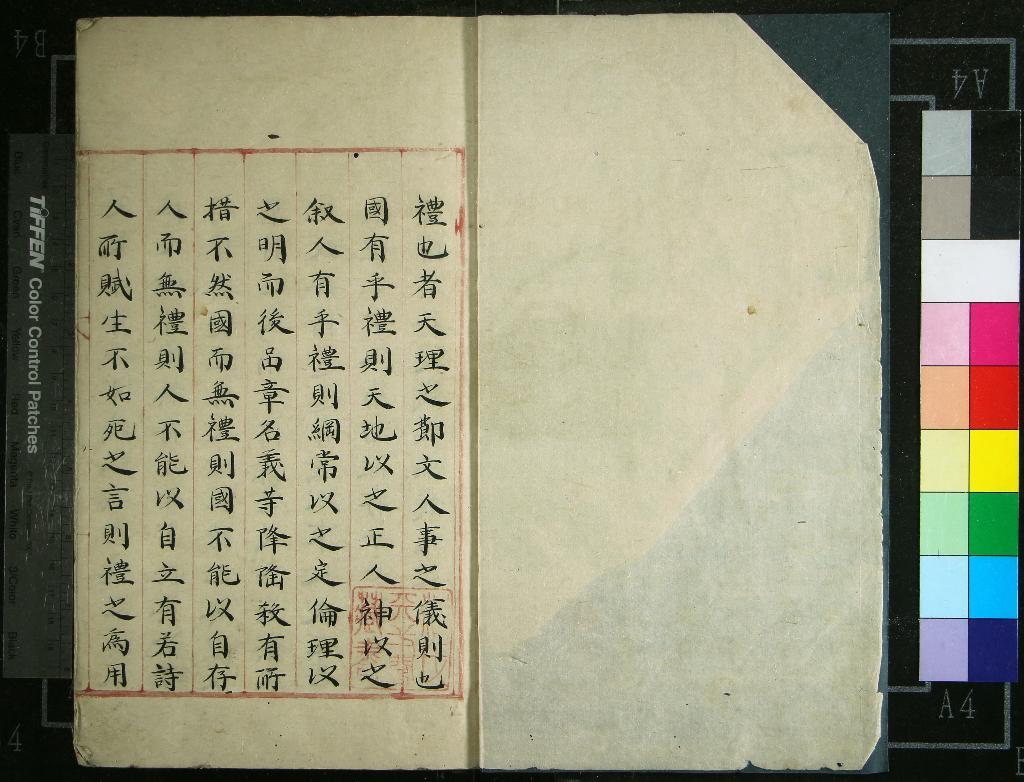 禮也者天理之節文人事之儀則也
國有乎禮則天地以之正人神以之
叙人有乎禮則綱常以之定倫理以
之明而後品章名義等降隆殺有所
措不然國而無禮則國不能以自存
人而無禮則人不能以自立有若詩
人所賦生不如死之言則禮之為用
TIFFEN Color Control Patches
B4
A4
A4